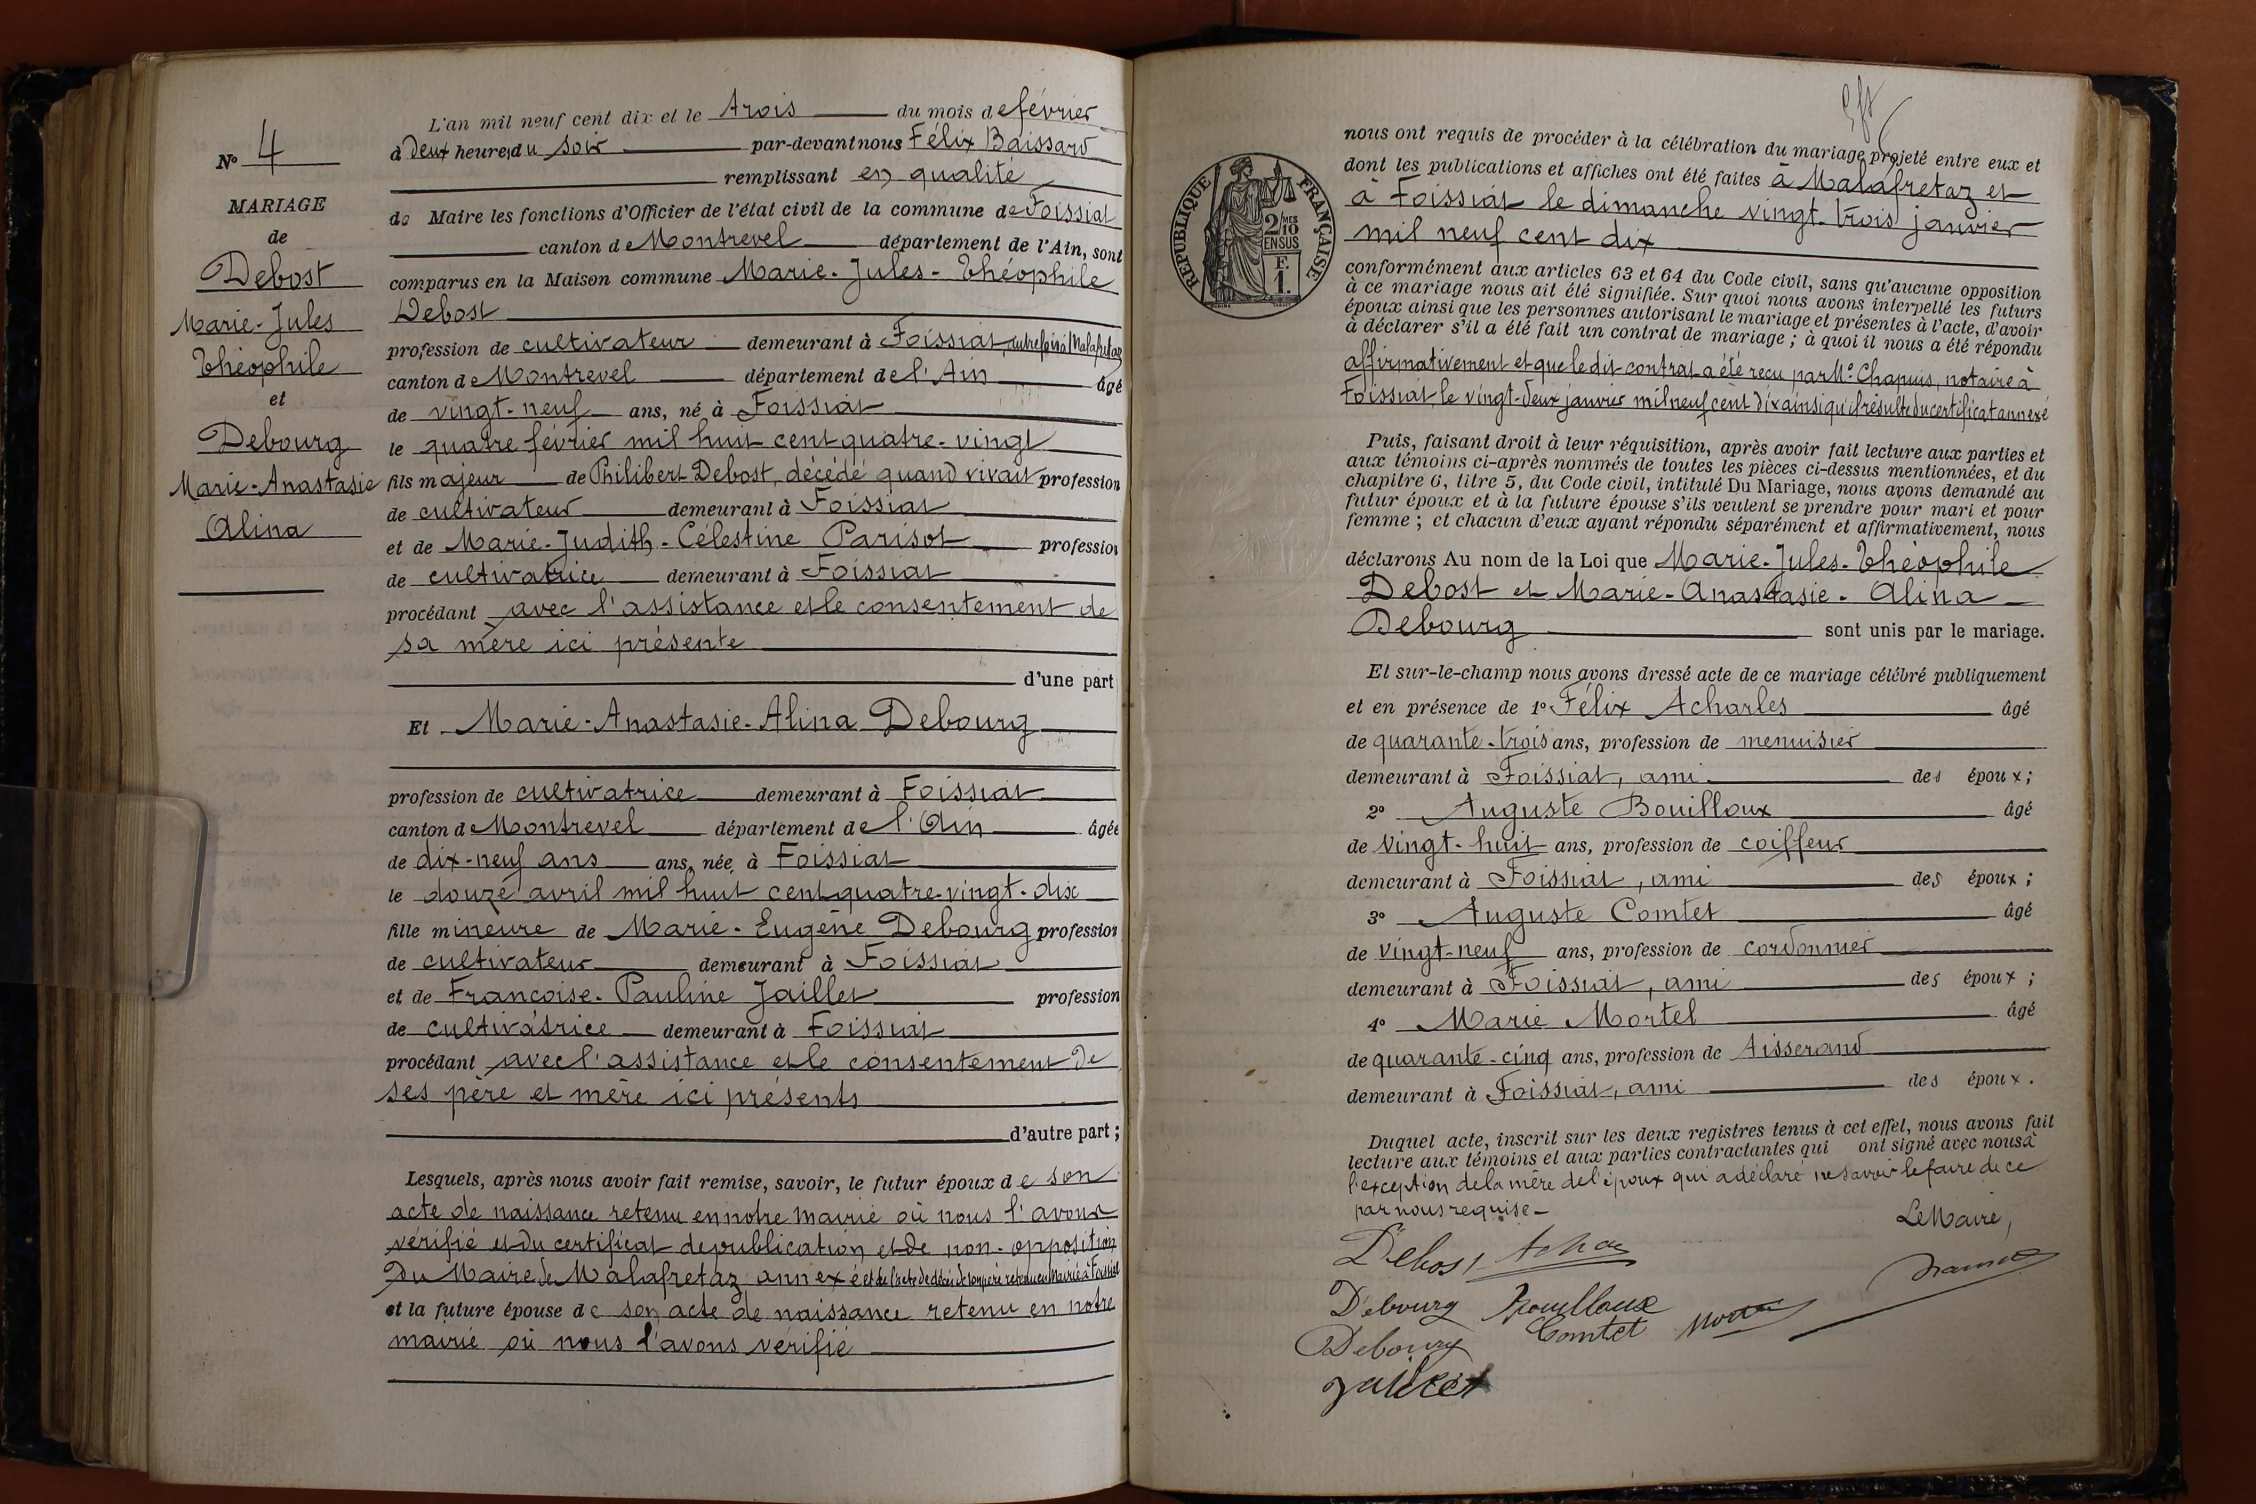 N° 4
MARIAGE
de
Debost
Marie-Jules
Théophile
et
Debourg
Marie-Anastasie
Alina
L'an mil neuf cent dix et le trois du mois de février
à deux heures du soir par-devant nous Félix Baissard
remplissant en qualité
de Maire les fonctions d'Officier de l'état civil de la commune de Foissiat
canton de Montrevel département de l'Ain, sont
comparus en la Maison commune Marie-Jules-Théophile
Debost
profession de cultivateur demeurant à Foissiat, autrefois à Malafretaz
canton de Montrevel département de l'Ain âgé
de vingt-neuf ans, né à Foissiat
le quatre février mil huit cent quatre-vingt
fils majeur de Philibert Debost, décédé quand vivait profession
de cultivateur demeurant à Foissiat
et de Marie-Judith-Célestine Parisot profession
de cultivatrice demeurant à Foissiat
procédant avec l'assistance et le consentement de
sa mère ici présente
d'une part
Et Marie-Anastasie-Alina Debourg
profession de cultivatrice demeurant à Foissiat
canton de Montrevel département de l'Ain âgée
de dix-neuf ans ans, née, à Foissiat
le douze avril mil huit cent quatre-vingt-dix
fille mineure de Marie-Eugène Debourg profession
de cultivateur demeurant à Foissiat
et de Françoise-Pauline Jaillet profession
de cultivatrice demeurant à Foissiat
procédant avec l'assistance et le consentement de
ses père et mère ici présents
d'autre part ;
Lesquels, après nous avoir fait remise, savoir, le futur époux de son
acte de naissance retenu en notre mairie où nous l'avons
vérifié et du certificat de publication et de non-opposition
du Maire de Malafretaz annexé et de l'acte de décès de son père retenu en Mairie à Foissiat
et la future épouse de son acte de naissance retenu en notre
mairie où nous l'avons vérifié
RÉPUBLIQUE FRANÇAISE
2/10 MES
EN SUS
F.
1.
nous ont requis de procéder à la célébration du mariage projeté entre eux et
dont les publications et affiches ont été faites à Malafretaz et
à Foissiat le dimanche vingt-trois janvier
mil neuf cent dix
conformément aux articles 63 et 64 du Code civil, sans qu'aucune opposition
à ce mariage nous ait été signifiée. Sur quoi nous avons interpellé les futurs
époux ainsi que les personnes autorisant le mariage et présentes à l'acte, d'avoir
à déclarer s'il a été fait un contrat de mariage ; à quoi il nous a été répondu
affirmativement et que le dit contrat a été reçu par Me Chapuis, notaire à
Foissiat, le vingt-deux janvier mil neuf cent dix ainsi qu'il résulte du certificat annexé
Puis, faisant droit à leur réquisition, après avoir fait lecture aux parties et
aux témoins ci-après nommés de toutes les pièces ci-dessus mentionnées, et du
chapitre 6, titre 5, du Code civil, intitulé Du Mariage, nous avons demandé au
futur époux et à la future épouse s'ils veulent se prendre pour mari et pour
femme ; et chacun d'eux ayant répondu séparément et affirmativement, nous
déclarons Au nom de la Loi que Marie-Jules-Théophile
Debost et Marie-Anastasie-Alina
Debourg sont unis par le mariage.
Et sur-le-champ nous avons dressé acte de ce mariage célébré publiquement
et en présence de 1° Félix Acharles âgé
de quarante-trois ans, profession de menuisier
demeurant à Foissiat, ami des époux ;
2° Auguste Bouilloux âgé
de vingt-huit ans, profession de coiffeur
demeurant à Foissiat, ami des époux ;
3° Auguste Comtet âgé
de vingt-neuf ans, profession de cordonnier
demeurant à Foissiat, ami des époux ;
4° Marie Mortel âgé
de quarante-cinq ans, profession de tisserand
demeurant à Foissiat, ami des époux.
Duquel acte, inscrit sur les deux registres tenus à cet effet, nous avons fait
lecture aux témoins et aux parties contractantes qui ont signé avec nous à
l'exception de la mère de l'époux qui a déclaré ne savoir le faire de ce
par nous requise-
Le Maire,
Debost
Debourg Bouilloux
Debourg Comtet
Jaillet